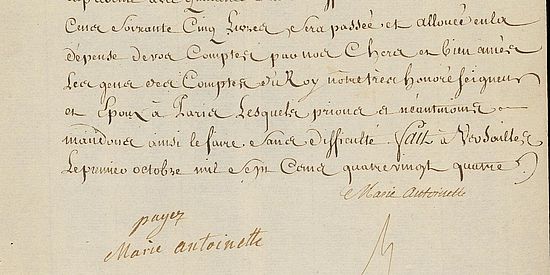 Cens soixante Cinq Livres sera passée et allouée en la
dépense de vos Comptes par nos Chers et bien amés
Les gens des Comptes du Roy notre tres honoré seigneur
et Epoux à Paris Lesquels prions et néantmoins
mandons ainsi le faire sans difficulté. fait à Versailles
Le premier octobre mil sept Cens quatre vingt quatre
Marie Antoinette
payez
Marie antoinette